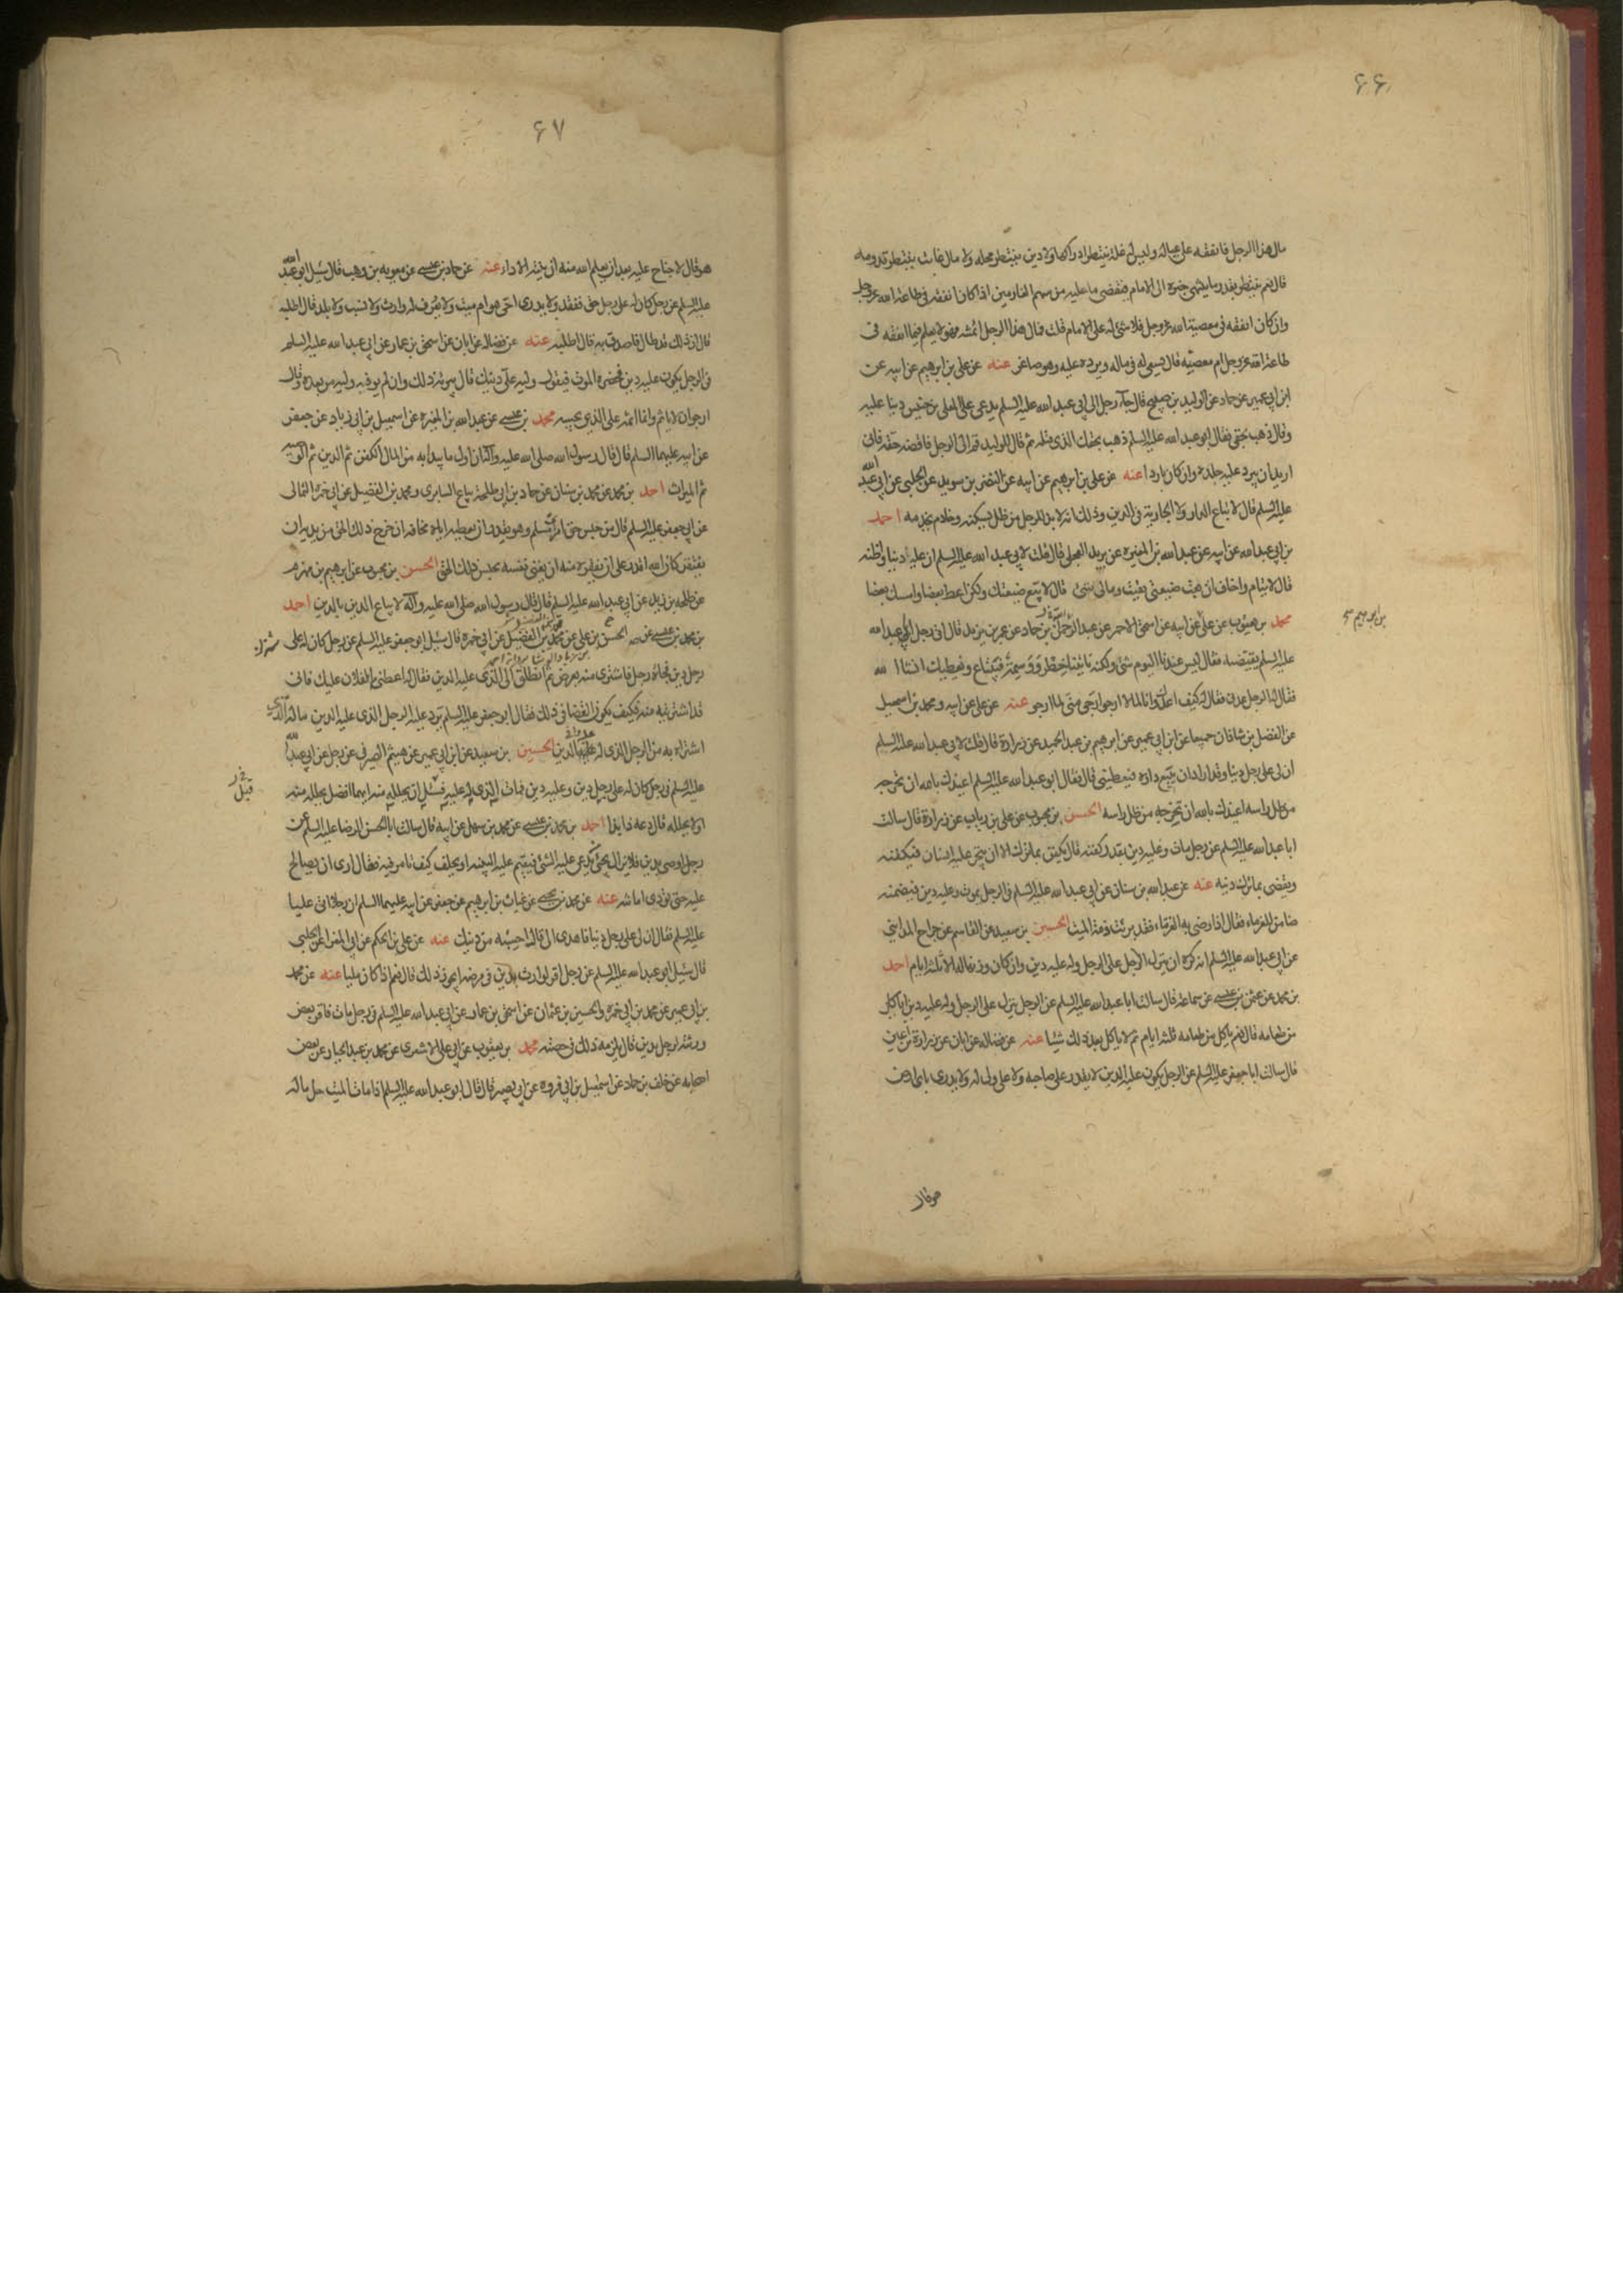 ۶۶
مال هذا الرجل فانفقه على عياله وليس له غلة ينتظر ادراكها ولا دين ينتظر محله ولا مال غايب ينتظر قدومه
قال نعم ينتظر بقدر ما ينتهى خبره الى الامام فيقضى ما عليه من سهم الغارمين اذا كان انفقه فى طاعة الله عزوجل
وان كان انفقه فى معصية الله عزوجل فلا شئ له على الامام قلت فمال هذا الرجل ائتمنه وهو لا يعلم فيما انفقه فى
طاعة الله عزوجل ام معصيته قال يسعى له فى ماله ويرده عليه وهو صاغر عنه عن على بن ابرهيم عن ابيه عن
ابن ابى عمير عن حماد عن الوليد بن صبيح قال جاء رجل الى ابى عبد الله عليه السلم يدعى على المعلى بن خنيس دينا عليه
وقال ذهب بحقى فقال ابو عبد الله عليه السلم ذهب بحقك الذى قتله ثم قال للوليد قم الى الرجل فاقضه حقه فانى
اريد ان يبرد عليه جلده وان كان باردا عنه عن على بن ابرهيم عن ابيه عن النضر بن سويد عن الحلبى عن ابى عبد الله
عليه السلم قال لا تباع الدار ولا الجارية فى الدين وذلك انه لا بد للرجل من ظل يسكنه وخادم يخدمه احمد
بن ابى عبد الله عن ابيه عن عبد الله بن المغيرة عن بريد العجلى قال قلت لابى عبد الله عليه السلم ان على دينا واظنه
قال لايتام واخاف ان بعت ضيعتى بقيت ومالى شئ قال لا تبع ضيعتك ولكن اعط بعضا وامسك بعضا
محمد بن يعقوب عن على عن ابيه عن اسحق الاحمر عن عبد الرحمن بن حماد عن عمر بن يزيد قال اتى رجل الى ابى عبد الله
بن ابرهيم
عليه السلم يقتضيه فقال ليس عندنا اليوم شئ ولكنه تاتينا خطر ووسمة فتباع ونعطيك انشا الله
فقال له الرجل عدنى فقال له كيف اعدك وانا لما لا ارجو ارجى منى لما ارجو عنه عن على عن ابيه ومحمد بن اسمعيل
عن الفضل بن شاذان جميعا عن ابن ابى عمير عن ابرهيم بن عبد الحميد عن زرارة قال قلت لابى عبد الله عليه السلم
ان لى على رجل دينا وقد اراد ان يبيع داره فيعطينى قال فقال ابو عبد الله عليه السلم اعيذك بالله ان تخرجه
من ظل راسه اعيذك بالله ان تخرجه من ظل راسه الحسن بن محبوب عن على بن رياب عن زرارة قال سالت
ابا عبد الله عليه السلم عن رجل مات وعليه دين بقدر كفنه قال يكفن بما ترك الا ان يتجر عليه انسان فيكفنه
ويقضى بما ترك دينه عنه عن عبد الله بن سنان عن ابى عبد الله عليه السلم فى الرجل يموت وعليه دين فيضمنه
ضامن للغرماء فقال اذا رضى به الغرماء فقد برئت ذمة الميت الحسين بن سعيد عن القاسم عن جراح المداينى
عن ابى عبد الله عليه السلم انه كره ان ينزل الرجل على الرجل وله عليه دين وان كان وزنها له الا ثلثة ايام احمد
بن محمد عن عثمن بن عيسى عن سماعة قال سالت ابا عبد الله عليه السلم عن الرجل ينزل على الرجل وله عليه دين اياكل
من طعامه قال نعم ياكل من طعامه ثلثة ايام ثم لا ياكل بعد ذلك شيئا عنه عن فضالة عن ابان عن زرارة بن اعين
قال سالت ابا جعفر عليه السلم عن الرجل يكون عليه الدين لا يقدر على صاحبه ولا على ولى له ولا يدرى باى ارض
هو قال
۶۷
هو قال لا جناح عليه بعد ان يعلم الله منه ان نيته الاداء عنه عن حماد بن عيسى عن معويه بن وهب قال سئل ابو عبد الله
عليه السلم عن رجل كان له على رجل حق ففقد ولا يدرى احى هو ام ميت ولا يعرف له وارث ولا نسب ولا بلد قال اطلبه
قال ان ذلك قد طال فاصدق به قال اطلبه عنه عن فضاله عن ابان عن اسحق بن عمار عن ابى عبد الله عليه السلم
فى الرجل يكون عليه دين فحضره الموت فيقول وليه على دينك قال يبرئه ذلك وان لم يوفه وليه من بعده وقال
ارجو ان لا ياثم وانما اثمه على الذى يحبسه محمد بن عيسى عن عبد الله بن المغيرة عن اسمعيل بن ابى زياد عن جعفر
عن ابيه عليهما السلم قال قال رسول الله صلى الله عليه وآله ان اول ما يبدا به من المال الكفن ثم الدين ثم الوصيه
ثم الميراث احمد بن محمد عن محمد بن سنان عن حماد بن ابى طلحة بياع السابرى ومحمد بن الفضيل عن ابى حمزة الثمالى
عن ابى جعفر عليه السلم قال من حبس حق امرئ مسلم وهو يقدر على ان يعطيه اياه مخافة ان خرج ذلك الحق من يده ان
يفتقر كان الله اقدر على ان يفقره منه ان يغنى نفسه بحبس ذلك الحق الحسن بن محبوب عن ابرهيم بن مهزم
عن طلحه بن زيد عن ابى عبد الله عليه السلم قال قال رسول الله صلى الله عليه وآله لا يباع الدين بالدين احمد
بن محمد بن عيسى عن الحسن بن على عن محمد بن الفضيل عن ابى حمزه قال سئل ابو جعفر عليه السلم عن رجل كان له على
رجل دين فجاءه رجل فاشترى منه بعرض ثم انطلق الى الذى عليه الدين فقال له اعطنى ما لفلان عليك فانى
قد اشتريته منه فكيف يكون القضا فى ذلك فقال ابو جعفر عليه السلم يرد عليه الرجل الذى عليه الدين ماله الذى
اشتراه به من الرجل الذى له عليه الدين الحسين بن سعيد عن ابن ابى عمير عن هيثم الصيرفى عن رجل عن ابى عبد الله
عليه السلم فى رجل كان له على رجل دين وعليه دين فمات الذى له عليه فسئل ان يحلله منه ايهما افضل يحلله منه
قبل
او لا يحلله قال دعه ذا بذا احمد بن محمد بن عيسى عن محمد بن سهل عن ابيه قال سالت ابا الحسن الرضا عليه السلم عن
رجل اوصى بدين فلا يزال يجئ من يدعى عليه الشئ فيقيم عليه البينه او يحلف كيف تامر فيه فقال ارى ان يصالح
عليه حتى يؤدى امانته عنه عن محمد بن يحيى عن غياث بن ابرهيم عن جعفر عن ابيه عليهما السلم ان رجلا اتى عليا
عليه السلم فقال ان لى على رجل دينا فاهدى الى قال احسبه من دينك عنه عن على بن الحكم عن ابى المغرا عن الحلبى
قال سئل ابو عبد الله عليه السلم عن رجل اقر لوارث بدين فى مرضه ايجوز ذلك قال نعم اذا كان مليا عنه عن محمد
بن ابى عمير عن محمد بن ابى حمزة والحسين بن عثمان عن اسحق بن عمار عن ابى عبد الله عليه السلم فى رجل مات فاقر بعض
ورثته لرجل بدين قال يلزمه ذلك فى حصته محمد بن يعقوب عن ابى على الاشعرى عن محمد بن عبد الجبار عن بعض
اصحابه عن خلف بن حماد عن اسمعيل بن ابى قره عن ابى بصير قال قال ابو عبد الله عليه السلم اذا مات الميت حل ماله